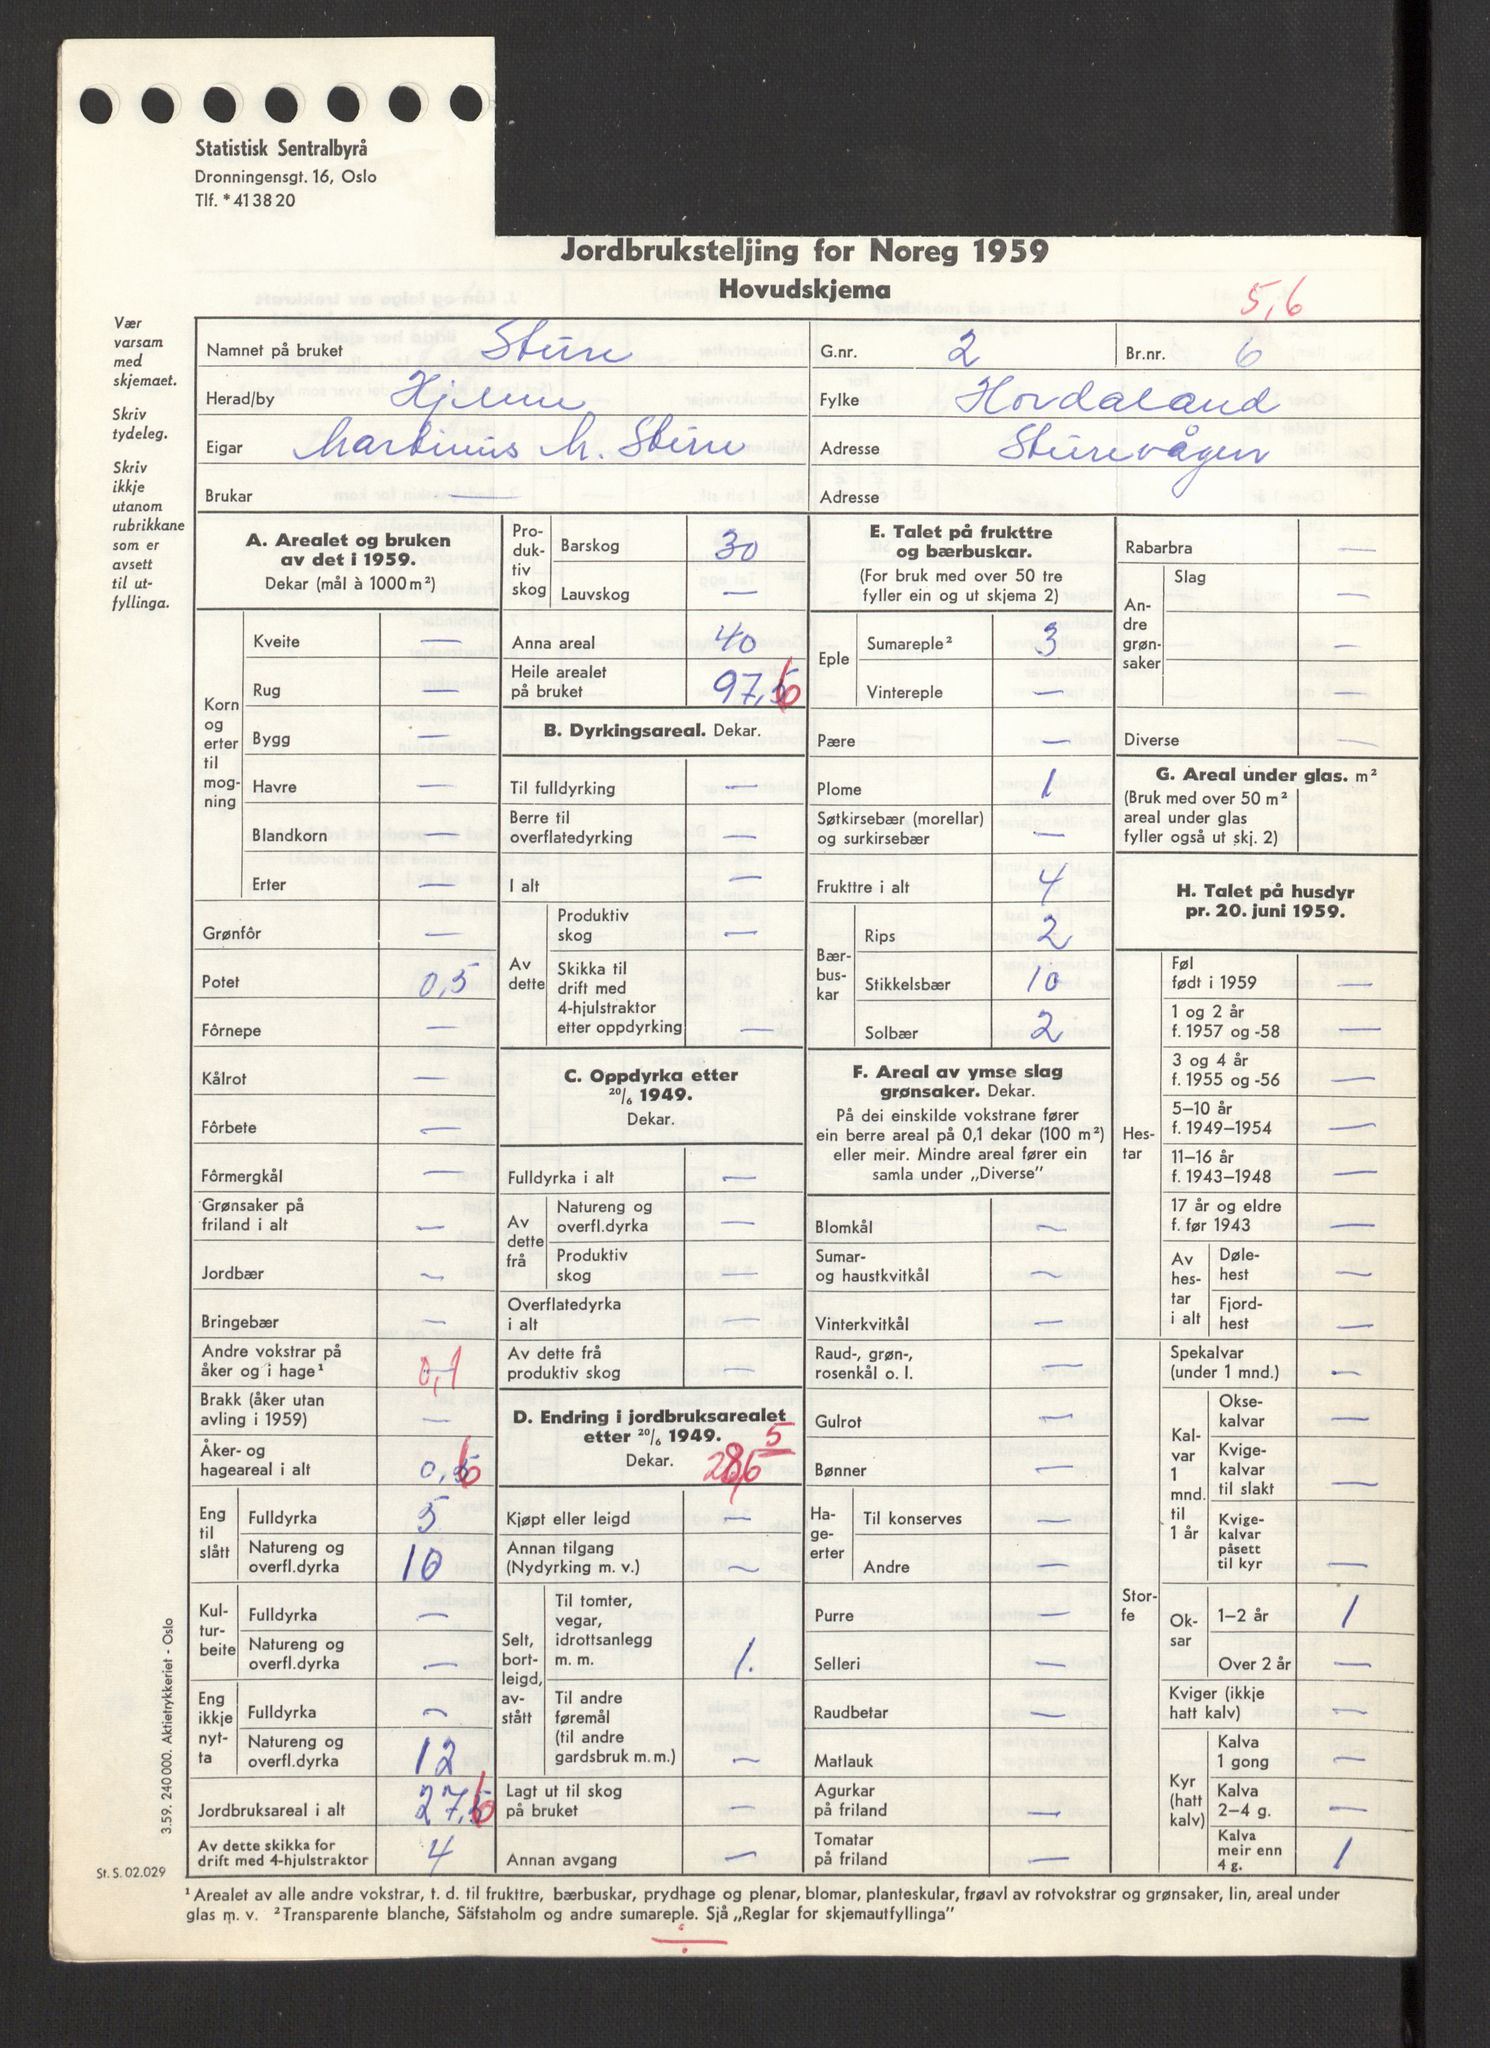 Statistisk Sentralbyrå
Dronningensgt. 16, Oslo
Tlf. *41 38 20
Jordbruksteljing for Noreg 1959
Hovudskjema
5,6
Vær
varsam
med
skjemaet.
Skriv
tydeleg.
Skriv
ikkje
utanom
rubrikkane
som er
avsett
til ut-
fyllinga.
Namnet på bruket Sture G.nr. 2 Br.nr. 6
Herad/by Hjelme Fylke Hordaland
Eigar Martinus M. Sture Adresse Sturevågen
Brukar — Adresse
A. Arealet og bruken
av det i 1959.
Dekar (mål à 1000 m²)
Korn
og
erter
til
mog-
ning
Kveite —
Rug —
Bygg —
Havre —
Blandkorn —
Erter —
Grønfôr —
Potet 0,5
Fôrnepe —
Kålrot —
Fôrbete —
Fôrmergkål —
Grønsaker på
friland i alt —
Jordbær —
Bringebær —
Andre vokstrar på
åker og i hage¹ 0,1
Brakk (åker utan
avling i 1959) —
Åker- og
hageareal i alt 0,6
Eng
til
slått
Fulldyrka 5
Natureng og
overfl.dyrka 10
Kul-
tur-
beite
Fulldyrka —
Natureng og
overfl.dyrka —
Eng
ikkje
nyt-
ta
Fulldyrka —
Natureng og
overfl.dyrka 12
Jordbruksareal i alt 27,6
Av dette skikka for
drift med 4-hjulstraktor 4
Pro-
duk-
tiv
skog
Barskog 30
Lauvskog —
Anna areal 40
Heile arealet
på bruket 97,6
B. Dyrkingsareal. Dekar.
Til fulldyrking —
Berre til
overflatedyrking —
I alt —
Av
dette
Produktiv
skog —
Skikka til
drift med
4-hjulstraktor
etter oppdyrking —
C. Oppdyrka etter
20/6 1949.
Dekar.
Fulldyrka i alt —
Av
dette
frå
Natureng og
overfl.dyrka —
Produktiv
skog —
Overflatedyrka
i alt —
Av dette frå
produktiv skog —
D. Endring i jordbruksarealet
etter 20/6 1949.
Dekar.
5
28,6
Kjøpt eller leigd —
Annan tilgang
(Nydyrking m. v.) —
Selt,
bort-
leigd,
av-
stått
Til tomter,
vegar,
idrottsanlegg
m. m. 1.
Til andre
føremål
(til andre
gardsbruk m. m.) —
Lagt ut til skog
på bruket —
Annan avgang —
E. Talet på frukttre
og bærbuskar.
(For bruk med over 50 tre
fyller ein og ut skjema 2)
Eple
Sumareple² 3
Vintereple —
Pære —
Plome 1
Søtkirsebær (morellar)
og surkirsebær —
Frukttre i alt 4
Bær-
bus-
kar
Rips 2
Stikkelsbær 10
Solbær 2
F. Areal av ymse slag
grønsaker. Dekar.
På dei einskilde vokstrane fører
ein berre areal på 0,1 dekar (100 m²)
eller meir. Mindre areal fører ein
samla under „Diverse”
Blomkål —
Sumar-
og haustkvitkål —
Vinterkvitkål —
Raud-, grøn-,
rosenkål o. l. —
Gulrot —
Bønner —
Ha-
ge-
erter
Til konserves —
Andre —
Purre —
Selleri —
Raudbetar —
Matlauk —
Agurkar
på friland —
Tomatar
på friland —
Rabarbra —
An-
dre
grøn-
saker
Slag
—
—
—
Diverse —
G. Areal under glas. m²
(Bruk med over 50 m²
areal under glas
fyller også ut skj. 2) —
H. Talet på husdyr
pr. 20. juni 1959.
Hes-
tar
Føl
født i 1959 —
1 og 2 år
f. 1957 og -58 —
3 og 4 år
f. 1955 og -56 —
5–10 år
f. 1949–1954 —
11–16 år
f. 1943–1948 —
17 år og eldre
f. før 1943 —
Av
hes-
tar
i alt
Døle-
hest —
Fjord-
hest —
Stor-
fe
Spekalvar
(under 1 mnd.) —
Kal-
var
1
mnd.
til
1 år
Okse-
kalvar —
Kvige-
kalvar
til slakt —
Kvige-
kalvar
påsett
til kyr —
Ok-
sar
1–2 år 1
Over 2 år —
Kviger (ikkje
hatt kalv) —
Kyr
(hatt
kalv)
Kalva
1 gong —
Kalva
2–4 g. —
Kalva
meir enn
4 g. 1
3.59. 240 000. Aktietrykkeriet - Oslo
St. S. 02.029
¹ Arealet av alle andre vokstrar, t. d. til frukttre, bærbuskar, prydhage og plenar, blomar, planteskular, frøavl av rotvokstrar og grønsaker, lin, areal under
glas m. v. ² Transparente blanche, Säfstaholm og andre sumareple. Sjå „Reglar for skjemautfyllinga”